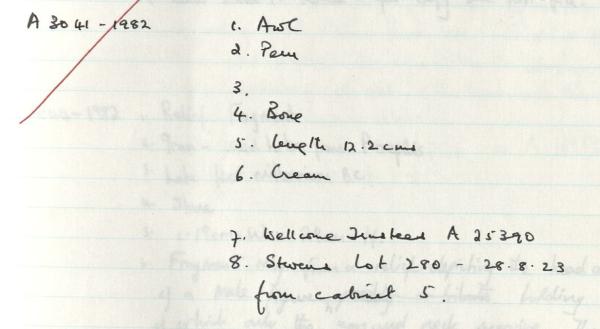 A 3041-1982 1. AWC
2. Peru
3.
4. Bone
5. length 12.2 cms
6. Cream
7. Wellcome Trustees A 25390
8. Stevens Lot 280 - 28.8.23
from cabinet 5.